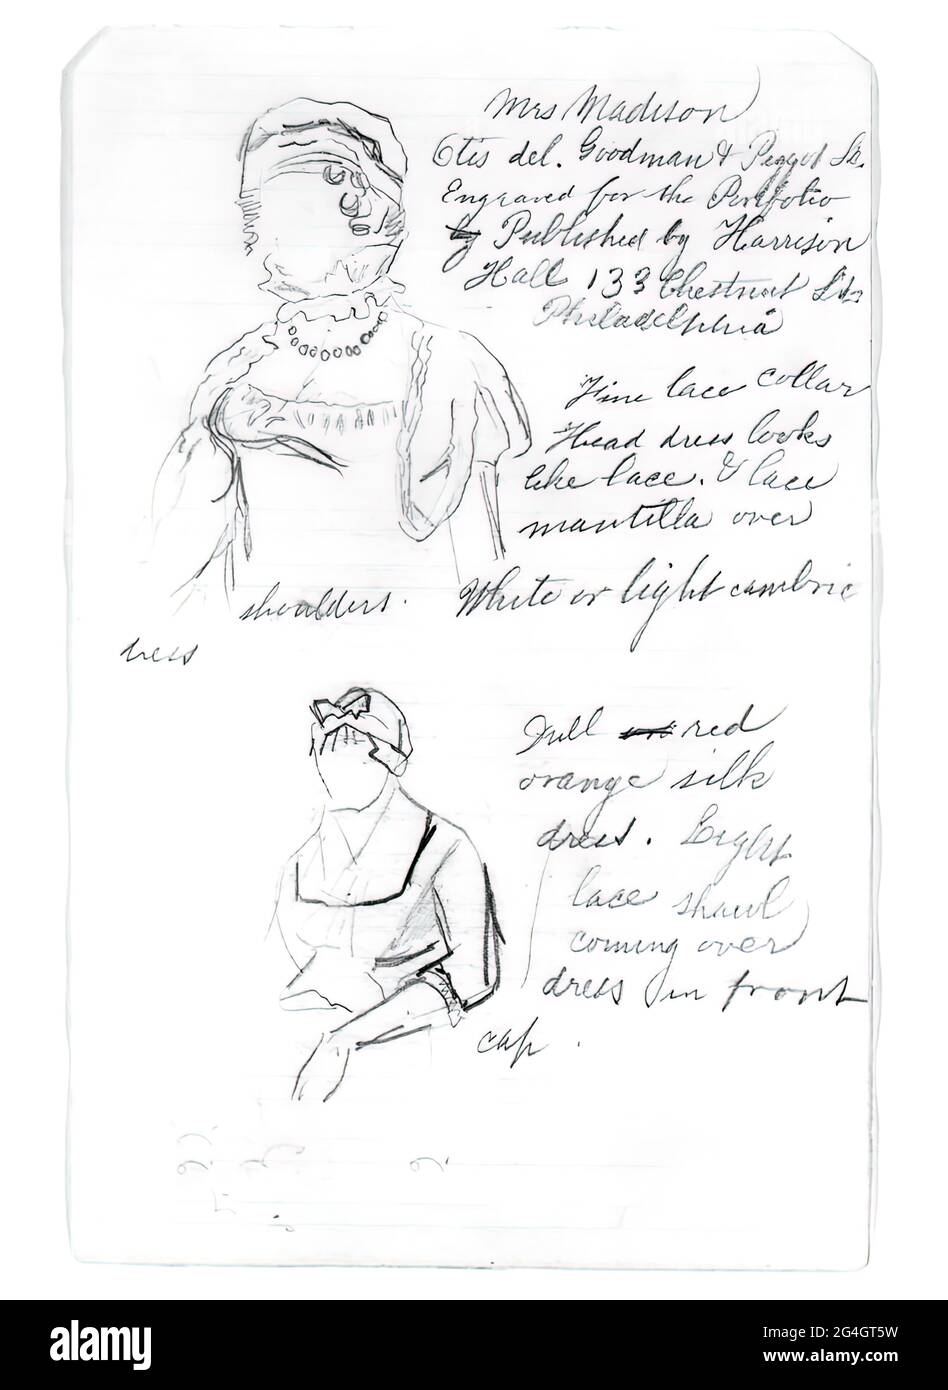 Mrs Madison
Otis del. Goodman & Piggot Sc.
Engraved for the Portfolio
by Published by Harrison
Hall 133 Chestnut St.
Philadelphia
Fine lace collar
Head dress looks
like lace. & lace
mantilla over
shoulders. White or light cambric
dress
Full red
orange silk
dress. Light
lace shawl
coming over
dress in front
cap.
alamy
Image ID: 2G4GT5W
www.alamy.com